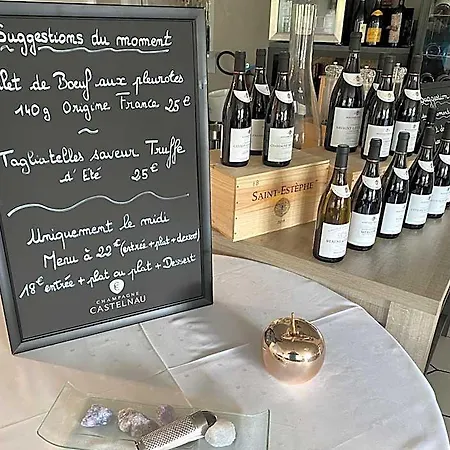 Suggestions du moment
let de Bœuf aux pleurotes
140g Origine France 25€
Tagliatelles saveur Truffe
d'Eté 25€
Uniquement le midi
Menu à 22€ (entrée + plat + dessert)
18€ entrée + plat ou plat + Dessert
CHAMPAGNE
CASTELNAU
SAINT-ESTÈPHE